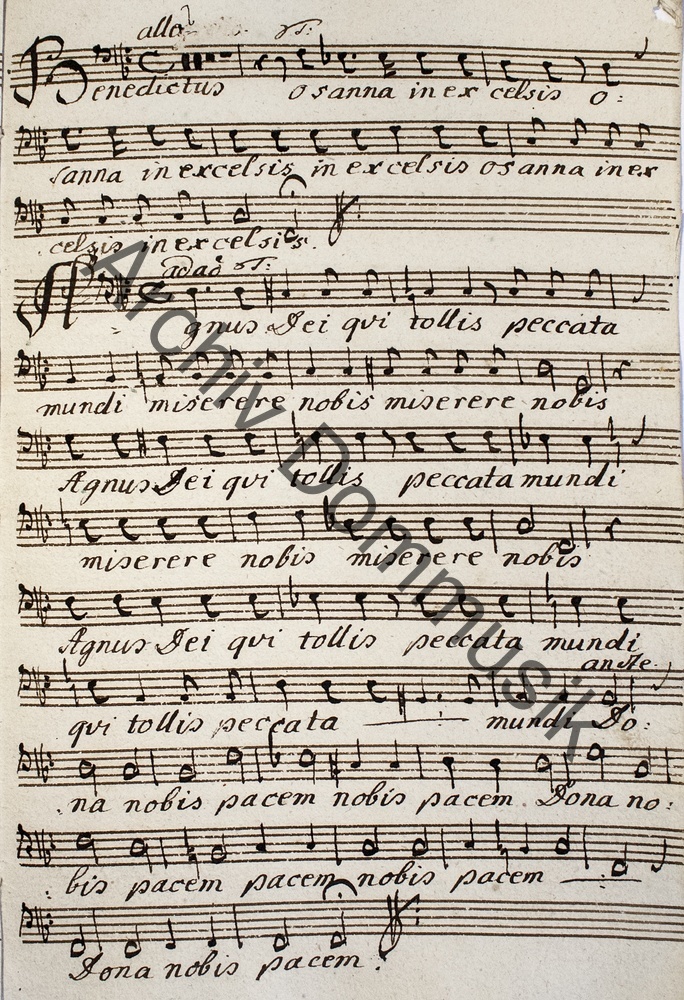 allo
Benedictus osanna in excelsis o:
sanna in excelsis in excelsis osanna in ex
celsis in excelsis.
adag
Agnus Dei qvi tollis peccata
mundi miserere nobis miserere nobis
Agnus Dei qvi tollis peccata mundi
miserere nobis miserere nobis
Agnus Dei qvi tollis peccata mundi
qvi tollis peccata mundi Do:
na nobis pacem nobis pacem. Dona no:
bis pacem pacem nobis pacem
Dona nobis pacem.
Archiv Dommusik